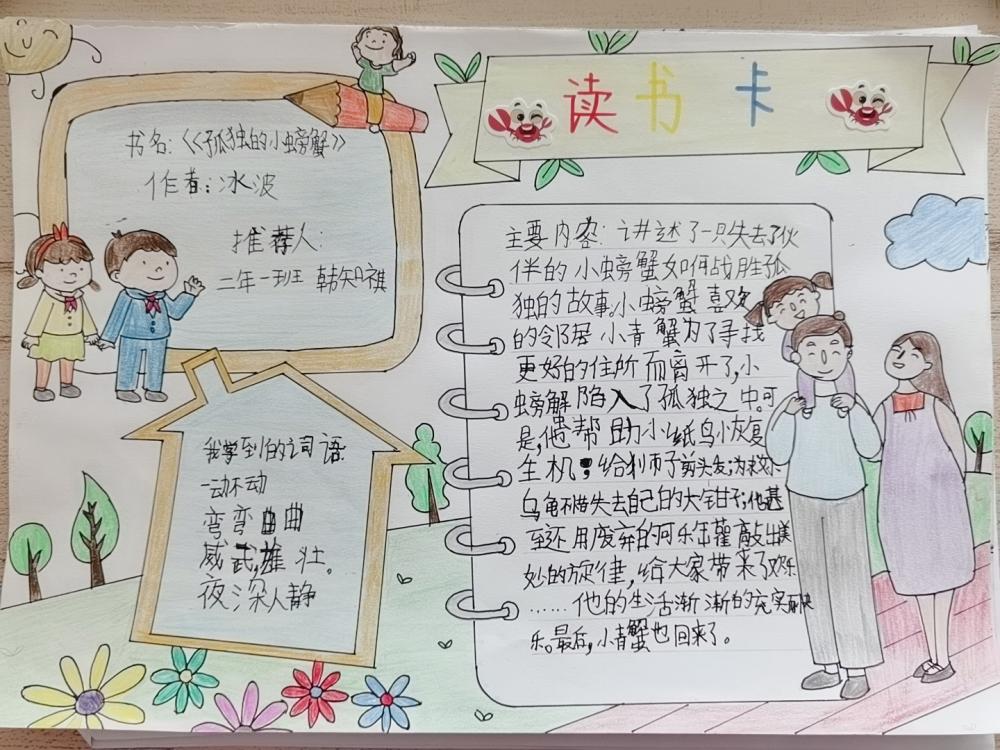 读书卡
书名:《孤独的小螃蟹》
作者:冰波
推荐人:
二年一班 韩知祺
我学到的词语:
一动不动
弯弯曲曲
威武雄壮。
夜深人静
主要内容:讲述了一只失去了伙
伴的小螃蟹如何战胜孤
独的故事。小螃蟹喜欢
的邻居小青蟹为了寻找
更好的住所而离开了,小
螃解陷入了孤独之中。可
是,他帮助小纸鸟恢复
生机;给刺币了剪头发;为求
乌龟不惜失去自己的大钳子;他甚
至还用废弃的可乐年罐敲出美
妙的旋律,给大家带来了欢乐
……他的生活渐渐的充实而快
乐。最后,小青蟹也回来了。